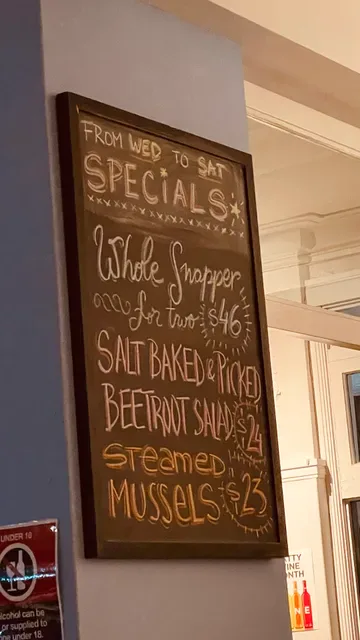 FROM WED TO SAT
SPECIALS
xxxxxxxxxxxx
Whole Snapper
for two $46
SALT BAKED & PICKED
BEETROOT SALAD $24
STEAMED
MUSSELS $23
UNDER 18
alcohol can be
or supplied to
one under 18.
ATTY
INE
ONTH
NE